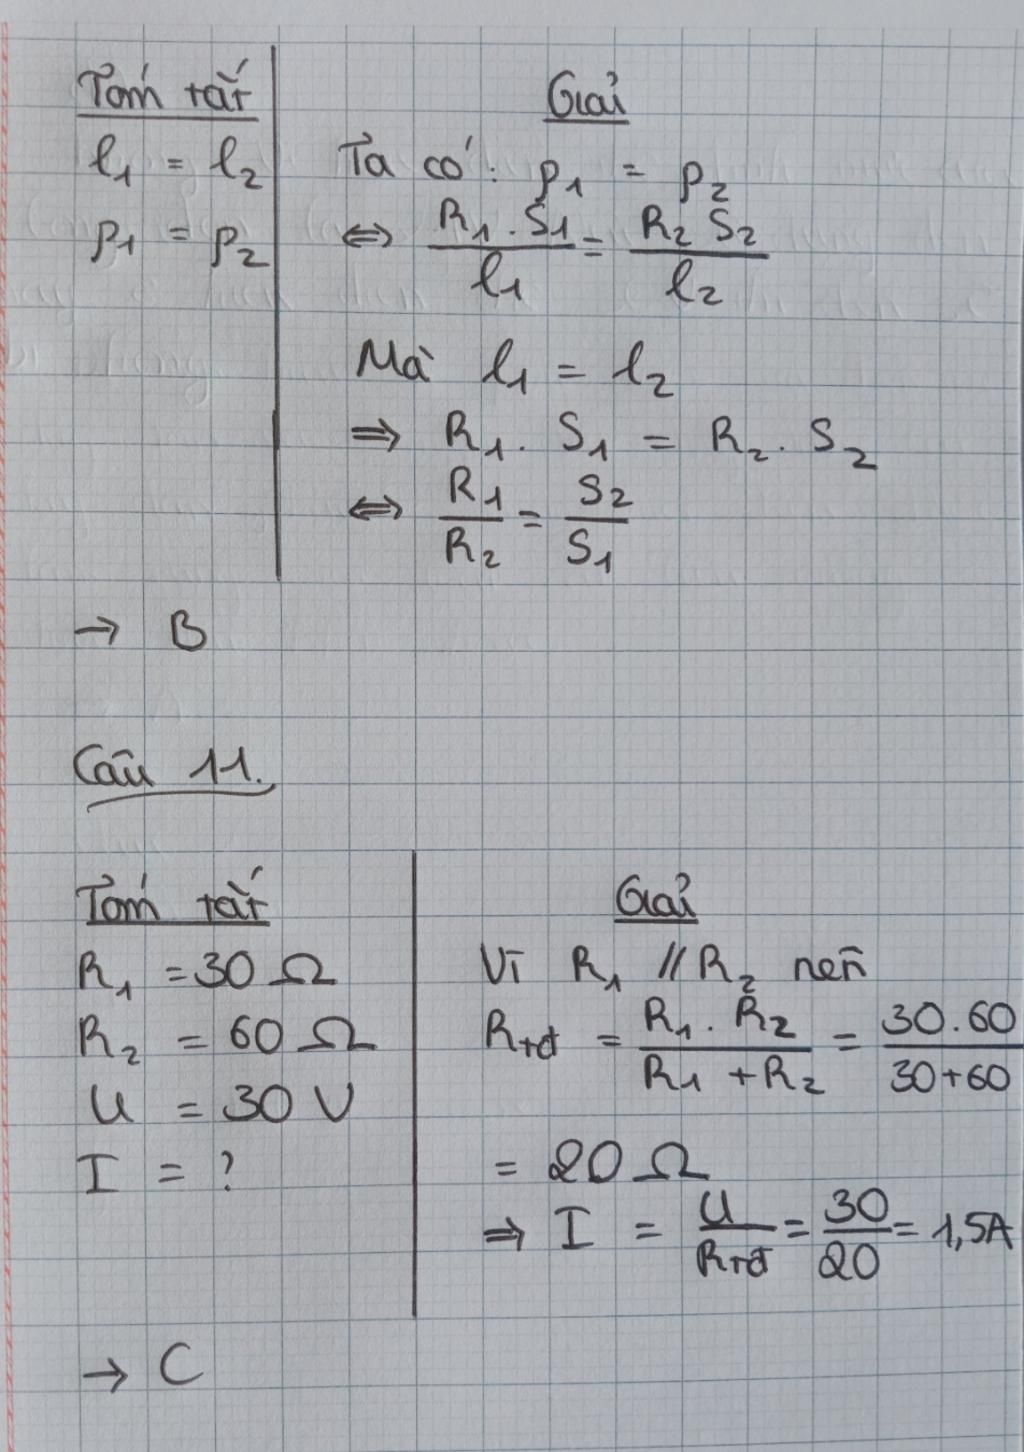 Tóm tắt
l₁ = l₂
ρ₁ = ρ₂
Giải
Ta có: ρ₁ = ρ₂
⇔ R₁ . S₁ / l₁ = R₂ S₂ / l₂
Mà l₁ = l₂
⇒ R₁ . S₁ = R₂ . S₂
⇔ R₁ / R₂ = S₂ / S₁
→ B
Câu 11.
Tóm tắt
R₁ = 30 Ω
R₂ = 60 Ω
U = 30 V
I = ?
Giải
Vì R₁ // R₂ nên
Rtđ = R₁ . R₂ / R₁ + R₂ = 30 . 60 / 30 + 60
= 20 Ω
⇒ I = U / Rtđ = 30 / 20 = 1,5A
→ C